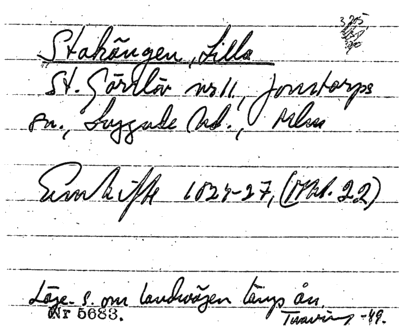 Stakängen, Lilla
St. Görslöv nr 11, Jonstorps
sn., Luggude hd., Mlm
Enskifte 1824-27, (Akt. 22)
Läge. S. om landvägen längs ån.
Nr 5683. -49.